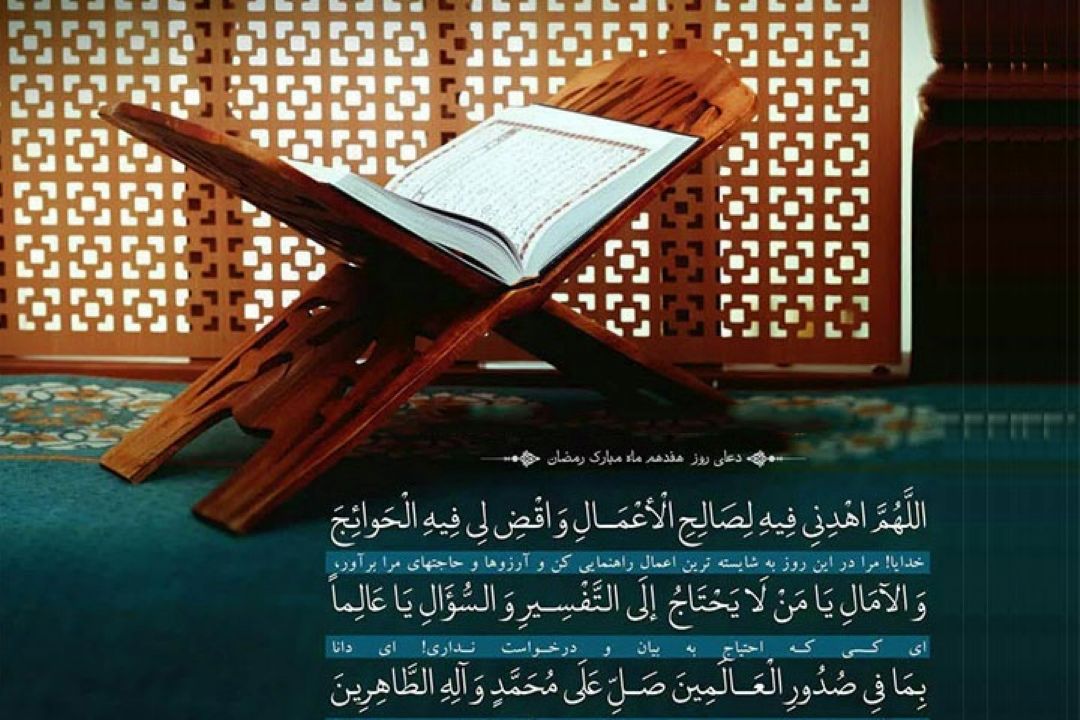 دعای روز هفدهم ماه مبارک رمضان
اللَّهُمَّ اهْدِنِي فِيهِ لِصَالِحِ الْأَعْمَالِ وَ اقْضِ لِي فِيهِ الْحَوائِجَ
خدایا! مرا در این روز به شایسته ترین اعمال راهنمایی کن و آرزوها و حاجتهای مرا برآور،
وَ الآمَالِ يَا مَنْ لَا يَحْتَاجُ إلَى التَّفْسِيرِ وَ السُّؤَالِ يَا عَالِماً
ای کسی که احتیاج به بیان و درخواست نداری! ای دانا
بِمَا فِي صُدُورِ الْعَالَمِينَ صَلِّ عَلَى مُحَمَّدٍ وَ آلِهِ الطَّاهِرِينَ